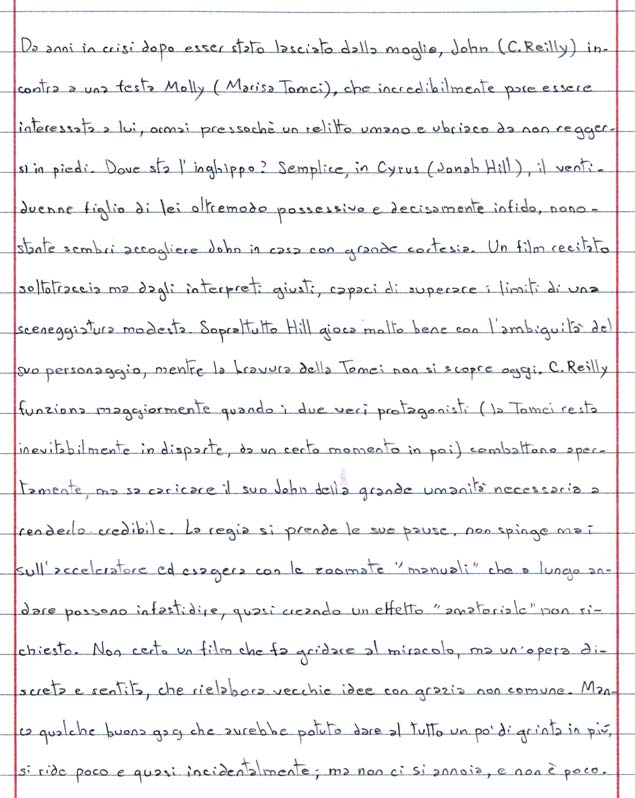 Da anni in crisi dopo esser stato lasciato dalla moglie, John (C.Reilly) in-
contra a una festa Molly (Marisa Tomei), che incredibilmente pare essere
interessata a lui, ormai pressochè un relitto umano e ubriaco da non regger-
si in piedi. Dove sta l'inghippo? Semplice, in Cyrus (Jonah Hill), il venti-
duenne figlio di lei oltremodo possessivo e decisamente infido, nono-
stante sembri accogliere John in casa con grande cortesia. Un film recitato
sottotraccia ma dagli interpreti giusti, capaci di superare i limiti di una
sceneggiatura modesta. Soprattutto Hill gioca molto bene con l'ambiguità del
suo personaggio, mentre la bravura della Tomei non si scopre oggi. C.Reilly
funziona maggiormente quando i due veri protagonisti (la Tomei resta
inevitabilmente in disparte, da un certo momento in poi) combattono aper-
tamente, ma sa caricare il suo John della grande umanità necessaria a
renderlo credibile. La regia si prende le sue pause, non spinge mai
sull'acceleratore ed esagera con le zoomate "manuali" che a lungo an-
dare possono infastidire, quasi creando un effetto "amatoriale" non ri-
chiesto. Non certo un film che fa gridare al miracolo, ma un'opera di-
screta e sentita, che rielabora vecchie idee con grazia non comune. Man-
ca qualche buona gag che avrebbe potuto dare al tutto un po' di grinta in più,
si ride poco e quasi incidentalmente; ma non ci si annoia, e non è poco.